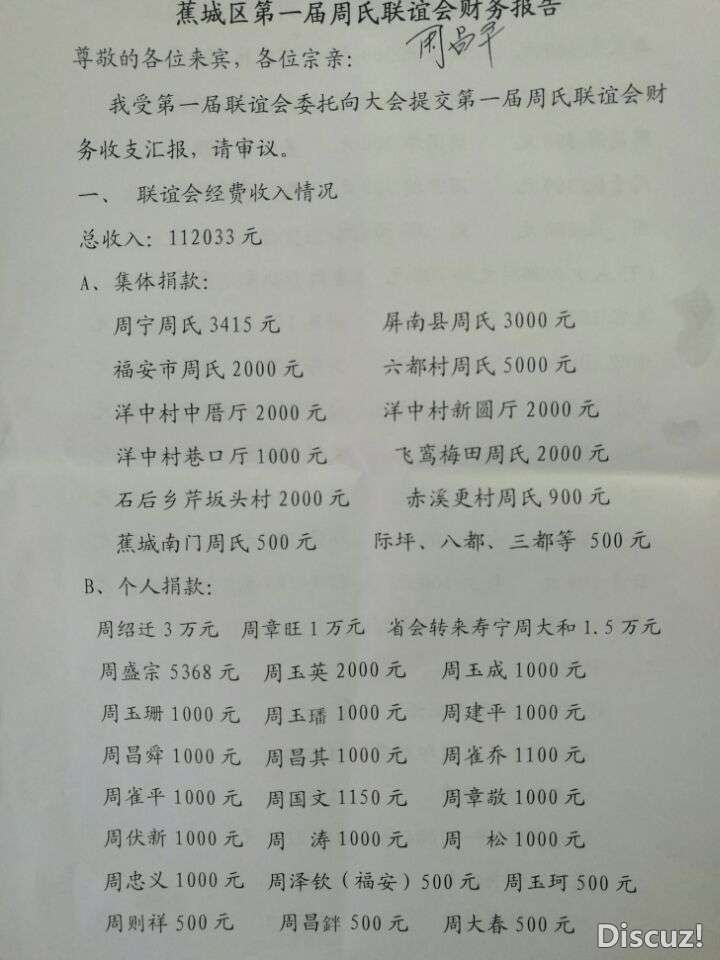 蕉城区第一届周氏联谊会财务报告
周昌平
尊敬的各位来宾，各位宗亲：
我受第一届联谊会委托向大会提交第一届周氏联谊会财
务收支汇报，请审议。
一、 联谊会经费收入情况
总收入：112033 元
A、集体捐款：
周宁周氏 3415 元 屏南县周氏 3000 元
福安市周氏 2000 元 六都村周氏 5000 元
洋中村中厝厅 2000 元 洋中村新圆厅 2000 元
洋中村巷口厅 1000 元 飞鸾梅田周氏 2000 元
石后乡芹坂头村 2000 元 赤溪更村周氏 900 元
蕉城南门周氏 500 元 际坪、八都、三都等 500 元
B、个人捐款：
周绍迁 3 万元 周章旺 1 万元 省会转来寿宁周大和 1.5 万元
周盛宗 5368 元 周玉英 2000 元 周玉成 1000 元
周玉珊 1000 元 周玉璠 1000 元 周建平 1000 元
周昌舜 1000 元 周昌其 1000 元 周雀乔 1100 元
周雀平 1000 元 周国文 1150 元 周章敬 1000 元
周伏新 1000 元 周 涛 1000 元 周 松 1000 元
周忠义 1000 元 周泽钦（福安）500 元 周玉珂 500 元
周则祥 500 元 周昌鉡 500 元 周大春 500 元
Discuz!